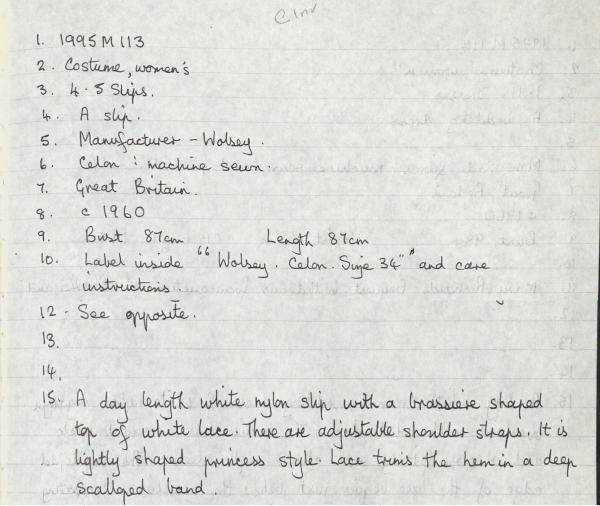 1. 1995 M 113
2. Costume, women's
3. 4.5 Slips.
4. A slip.
5. Manufacturer - Wolsey.
6. Celon : machine sewn.
7. Great Britain.
8. c 1960
9. Bust 87cm Length 87cm
10. Label inside "Wolsey. Celon. Size 34"" and care
instructions.
12. See opposite.
13.
14.
15. A day length white nylon slip with a brassiere shaped
top of white lace. There are adjustable shoulder straps. It is
lightly shaped princess style. Lace trims the hem in a deep
scalloped band.